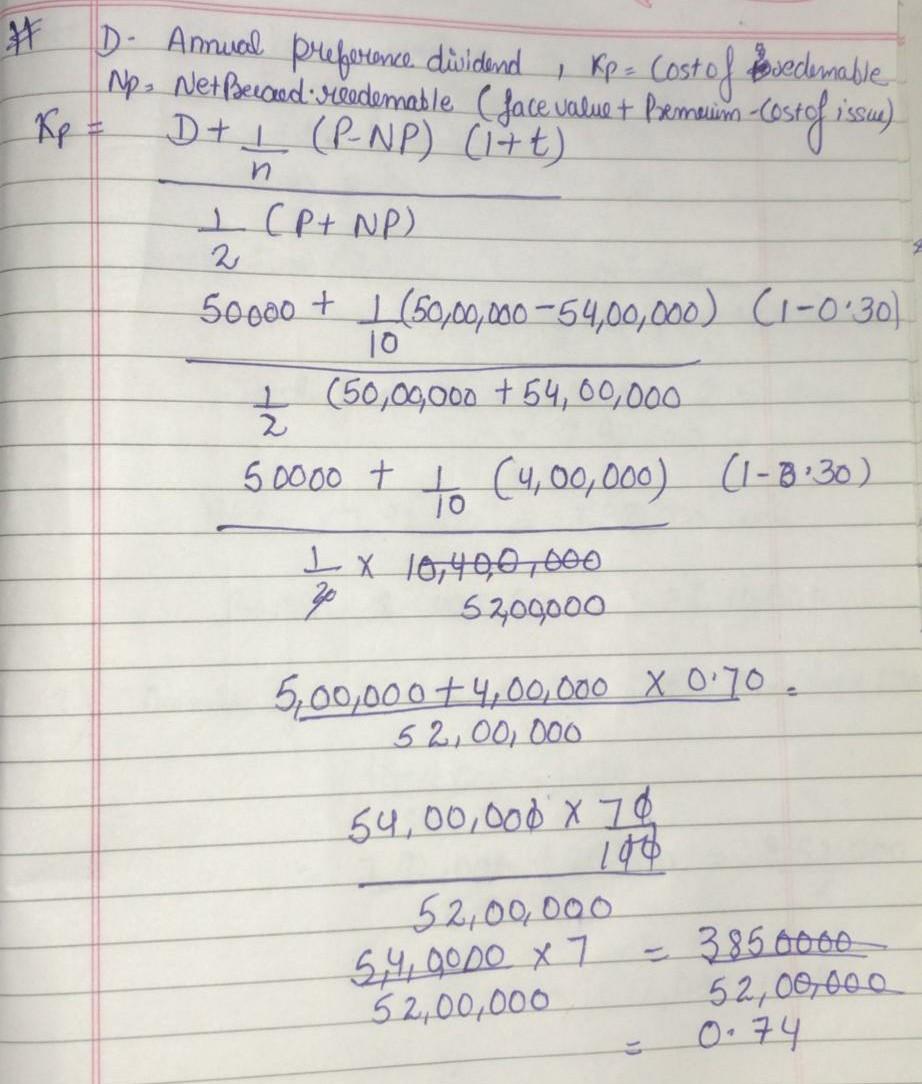 # D- Annual preference dividend, Kp = Cost of redemable
Np = Net Becaed. reedemable (face value + Premeuim - Cost of issue)
Kp = D + 1/n (P-NP) (1+t)
1/2 (P + NP)
50000 + 1/10 (50,00,000 - 54,00,000) (1-0.30)
1/2 (50,00,000 + 54,00,000
50000 + 1/10 (4,00,000) (1-0.30)
1/2 × 10,400,000
52,00,000
5,00,000 + 4,00,000 × 0.70 =
52,00,000
54,00,000 × 70/100
52,00,000
5,4,0000 × 7 = 3850000
52,00,000 52,00,000
= 0.74